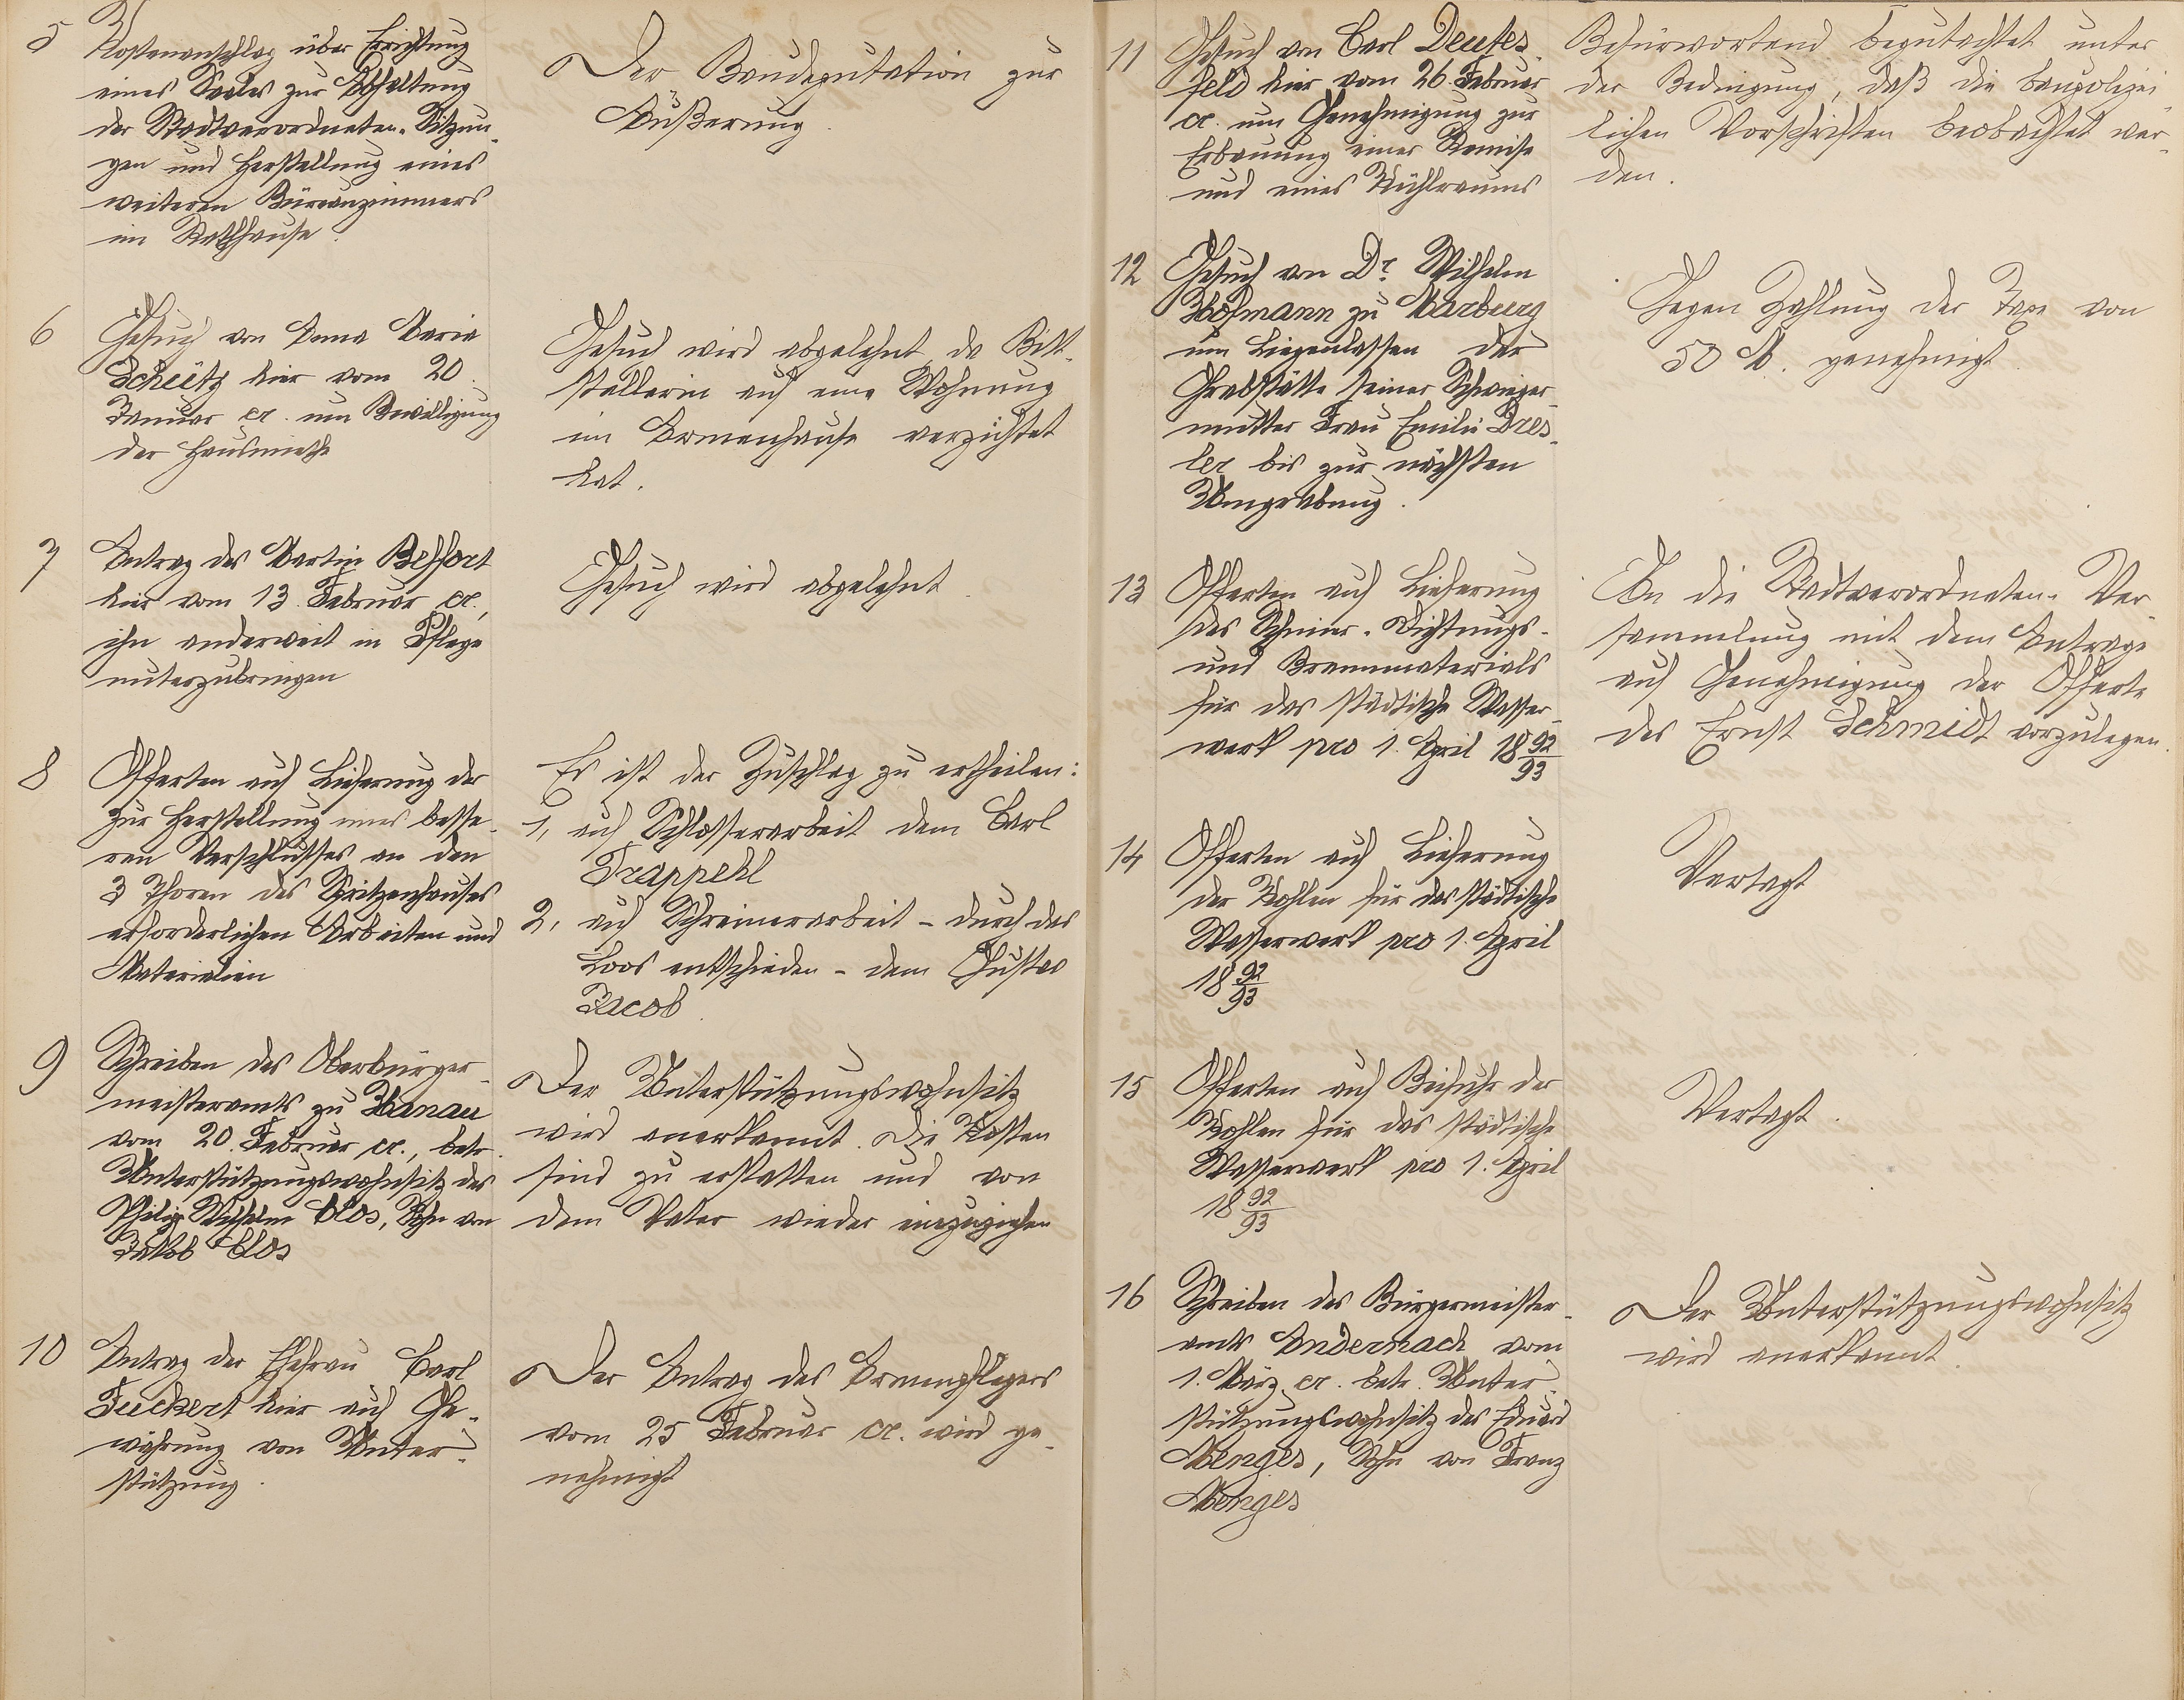 5
Kostenanschlag über Errichtung
eines Saales zur Abhaltung
der Stadtverordneten-Sitzun-
gen und Herstellung eines
weiteren Büreauzimmers
im Rathhause.
Der Baudeputation zur
Äußerung.
6
Gesuch von Anna Maria
Schütz hier vom 20.
Januar cr. um Bewilligung
der Hausmiethe
Gesuch wird abgelehnt, da Bitt-
stellerin auf eine Wohnung
im Armenhause verzichtet
hat.
7
Antrag des Martin Beffort
hier vom 13. Februar cr.,
ihn anderweit in Pflege
unterzubringen
Gesuch wird abgelehnt.
8
Offerten auf Lieferung der
zur Herstellung eines besse-
ren Verschlusses an den
3 Thoren des Spritzenhauses
erforderlichen Arbeiten und
Materialien
Es ist der Zuschlag zu ertheilen:
1, auf Schlosserarbeit dem Carl
Trappehl
2, auf Schreinerarbeit - durch das
Loos entschieden - dem Gustav
Jacob.
9
Schreiben des Oberbürger-
meisteramts zu Hanau
vom 20. Februar cr., betr.
Unterstützungswohnsitz des
Philipp Wilhelm Clos, Sohn von
Jakob Clos
Der Unterstützungswohnsitz
wird anerkannt. Die Kosten
sind zu erstatten und von
dem Vater wieder einzuziehen
10
Antrag der Ehefrau Carl
Fuckert hier auf Ge-
währung von Unter-
stützung.
Der Antrag des Armenpflegers
vom 25 Februar cr. wird ge-
nehmigt
11
Gesuch von Carl Deutes-
feld hier vom 26. Februar
cr. um Genehmigung zur
Erbauung einer Remise
und eines Kühlraums
Befürwortend begutachtet unter
der Bedingung, daß die baupolizei-
lichen Vorschriften beobachtet wer-
den.
12
Gesuch von Dr. Wilhelm
Hofmann zu Marburg
um Liegenlassen der
Grabstätte seiner Schwieger-
mutter Frau Emilie Dres-
ler bis zur nächsten
Umgrabung.
Gegen Zahlung der Taxe von
50 M. genehmigt
13
Offerten auf Lieferung
des Schmier-Dichtungs-
und Brennmaterials
für das städtische Wasser-
werk pro 1. April 1892/93
An die Stadtverordneten-Ver-
sammlung mit dem Antrage
auf Genehmigung der Offerte
des Ernst Schmidt vorzulegen.
14
Offerten auf Lieferung
der Kohlen für das städtische
Wasserwerk pro 1. April
1892/93
Vertagt
15
Offerten auf Beifuhr der
Kohlen für das städtische
Wasserwerk pro 1. April
1892/93
Vertagt.
16
Schreiben des Bürgermeister-
amts Andernach vom
1. März cr. betr. Unter-
stützungswohnsitz des Eduard
Menges, Sohn von Franz
Menges
Der Unterstützungswohnsitz
wird anerkannt.